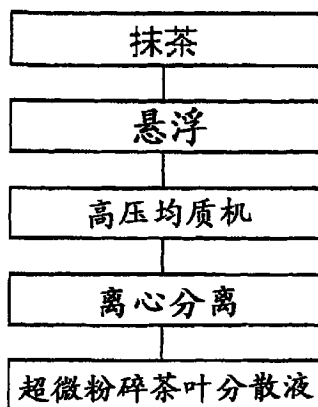 抹茶
悬浮
高压均质机
离心分离
超微粉碎茶叶分散液